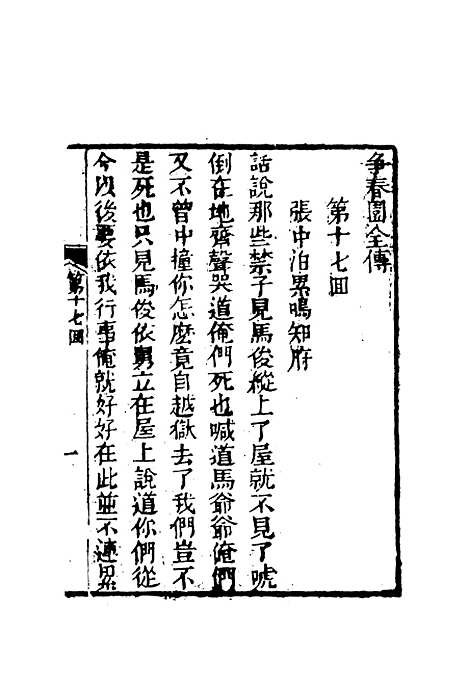 爭春園全傳
第十七回
張中泊累鳴知府
話說那些禁子見馬俊縱上了屋就不見了唬
倒在地齊聲哭道俺們死也喊道馬爺爺俺們
又不曾中撞你怎麽竟自越獄去了我們豈不
是死也只見馬俊依舅立在屋上說道你們從
今以後要依我行事俺就好好在此並不連累
第十七回
一